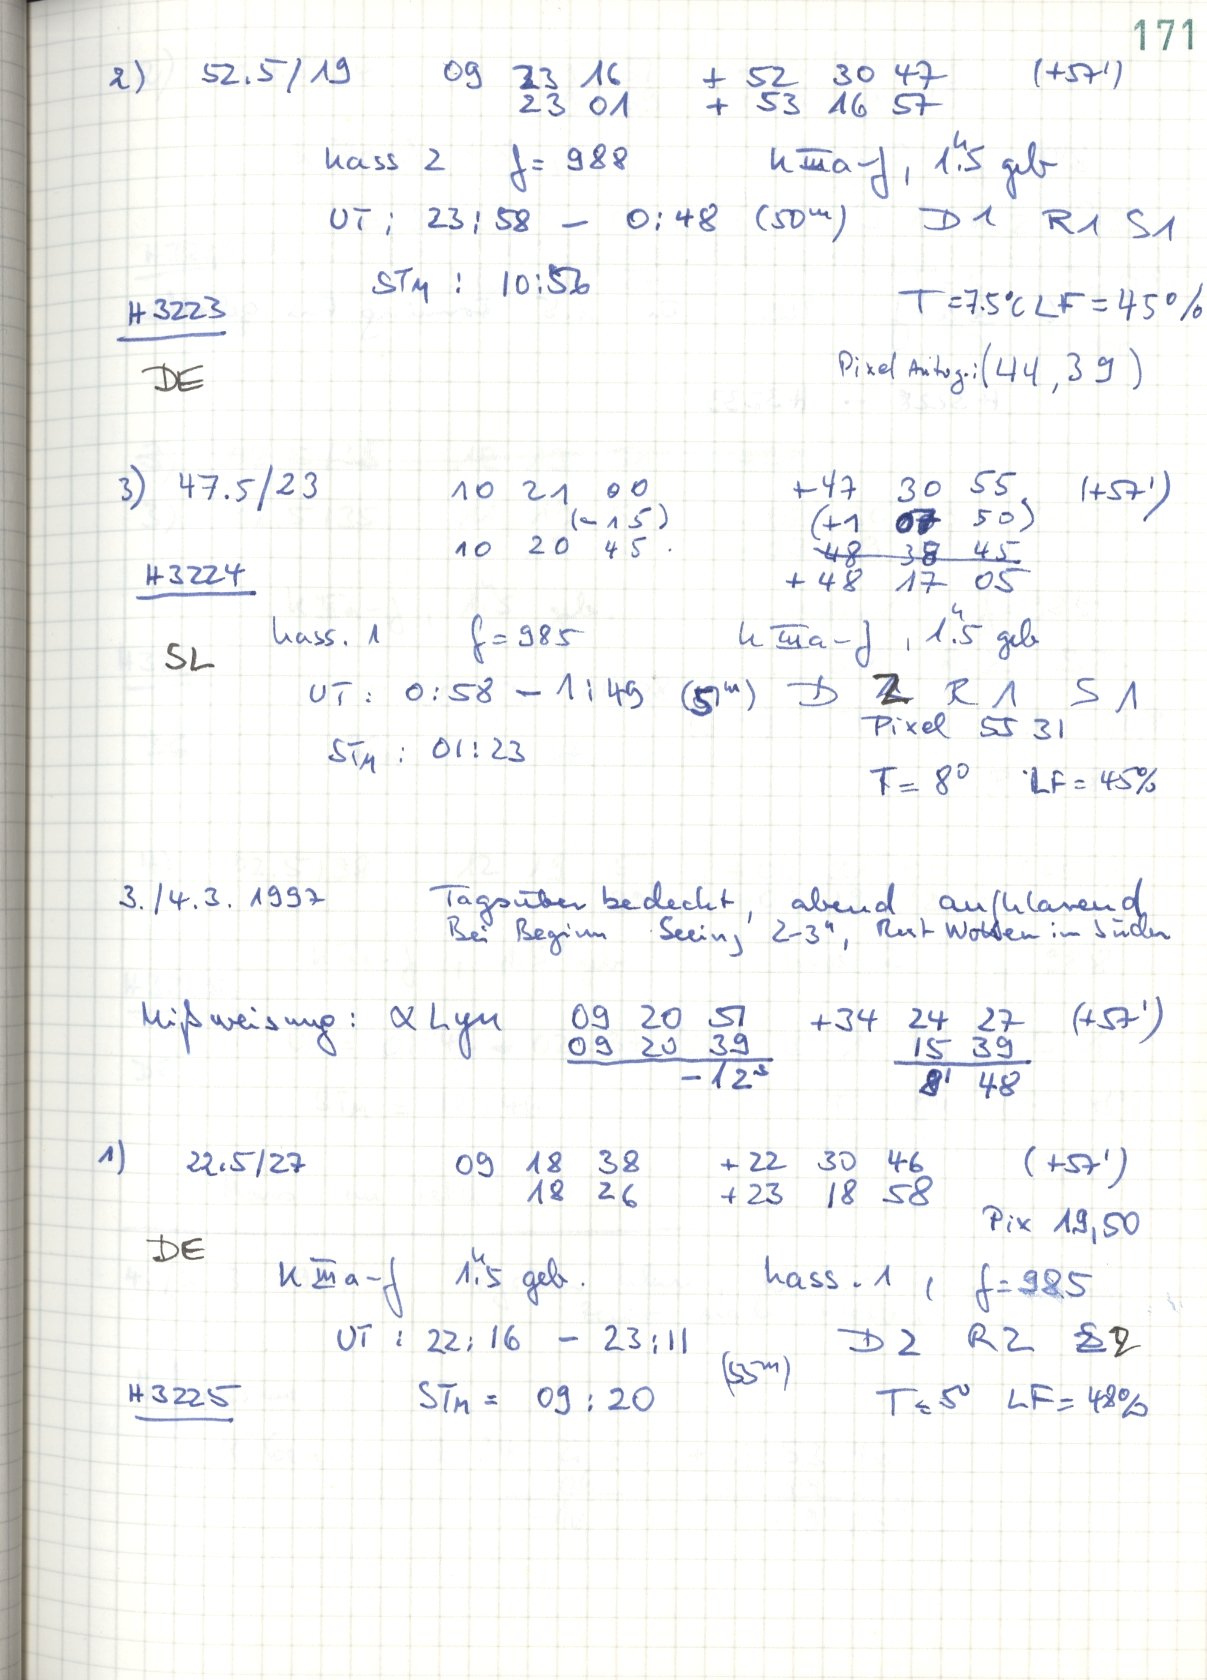 171
2) 52.5/19 09 23 16 + 52 30 47 (+57')
23 01 + 53 16 57
Kass 2 f= 988 K IIIa-J, 1.ʰ5 geb
UT: 23:58 - 0:48 (50ᵐ) D1 R1 S1
STM : 10:56
H3223 T=7.5°C LF=45%
DE Pixel Autog.: (44,39)
3) 47.5/23 10 21 00 +47 30 55 (+57')
(-15) (+1 07 50)
10 20 45 48 38 45
H3224 +48 17 05
Kass. 1 f=985 K IIIa-J, 1.ʰ5 geb
SL
UT: 0:58 - 1:49 (51ᵐ) D 2 R 1 S 1
Pixel 55 31
STM : 01:23
T= 8° LF=45%
3./4.3. 1997 Tagsüber bedeckt, abend aufklarend
Bei Beginn Seeing 2-3", Rest Wolken im Süden
Mißweisung: α Lyn 09 20 51 +34 24 27 (+57')
09 20 39 15 39
-12ˢ 8' 48
1) 22.5/27 09 18 38 +22 30 46 (+57')
18 26 +23 18 58
Pix 19,50
DE
K IIIa-J 1.ʰ5 geb. Kass. 1, f=985
UT: 22:16 - 23:11 (55ᵐ) D2 R2 S2
H3225 STM = 09:20 T=5° LF=48%